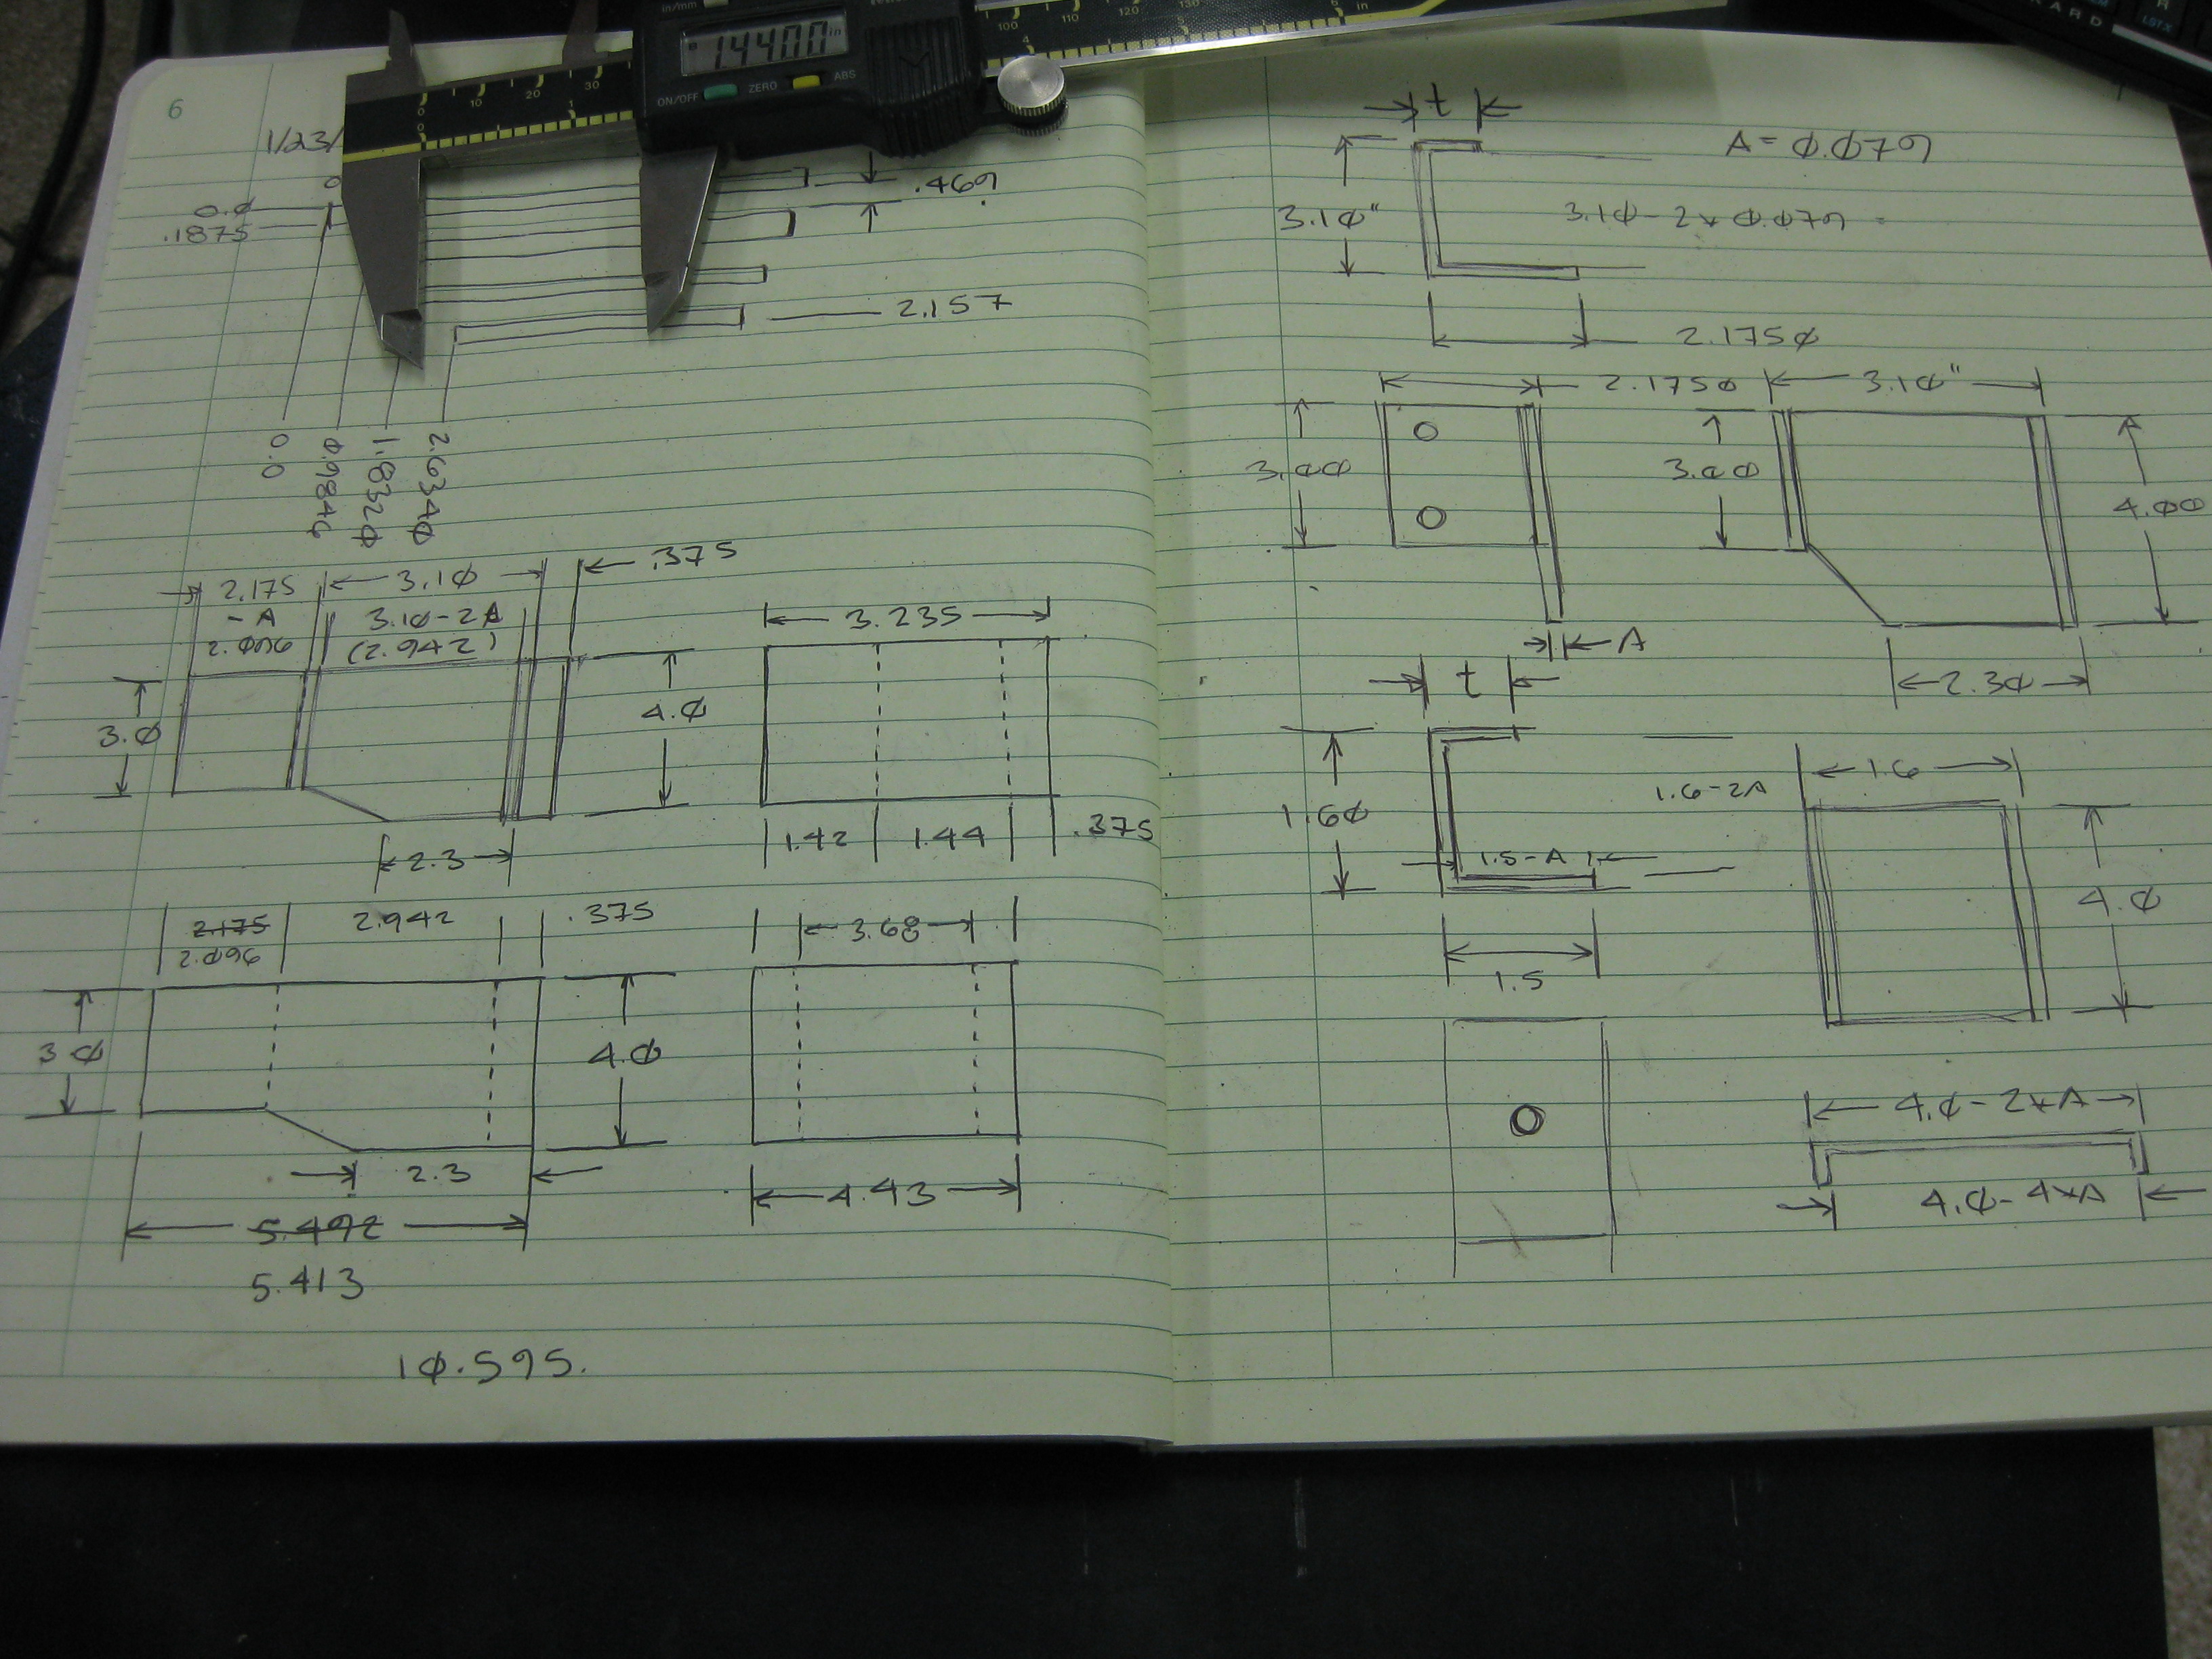 in/mm
1.4400 in
ON/OFF ZERO ABS
0 10 20 30
0 1
100 110 120 130
4 5 6 in
KARD
LST X
6
1/23/
0
0.0
.1875
.469
2.157
0.0
0.9846
1.8320
2.6340
2.175
- A
2.096
3.10
3.10-2A
(2.942)
.375
3.0
4.0
2.3
3.235
1.42
1.44
.375
2.175
2.096
2.942
.375
3.0
4.0
2.3
5.492
5.413
3.68
4.43
10.595.
t
A = 0.079
3.10"
3.10 - 2 x 0.079 =
2.1750
2.1750
3.00
A
3.10"
3.00
4.00
2.30
t
1.60
1.6-2A
1.5-A
1.5
1.6
4.0
4.0-2xA
4.0-4xA